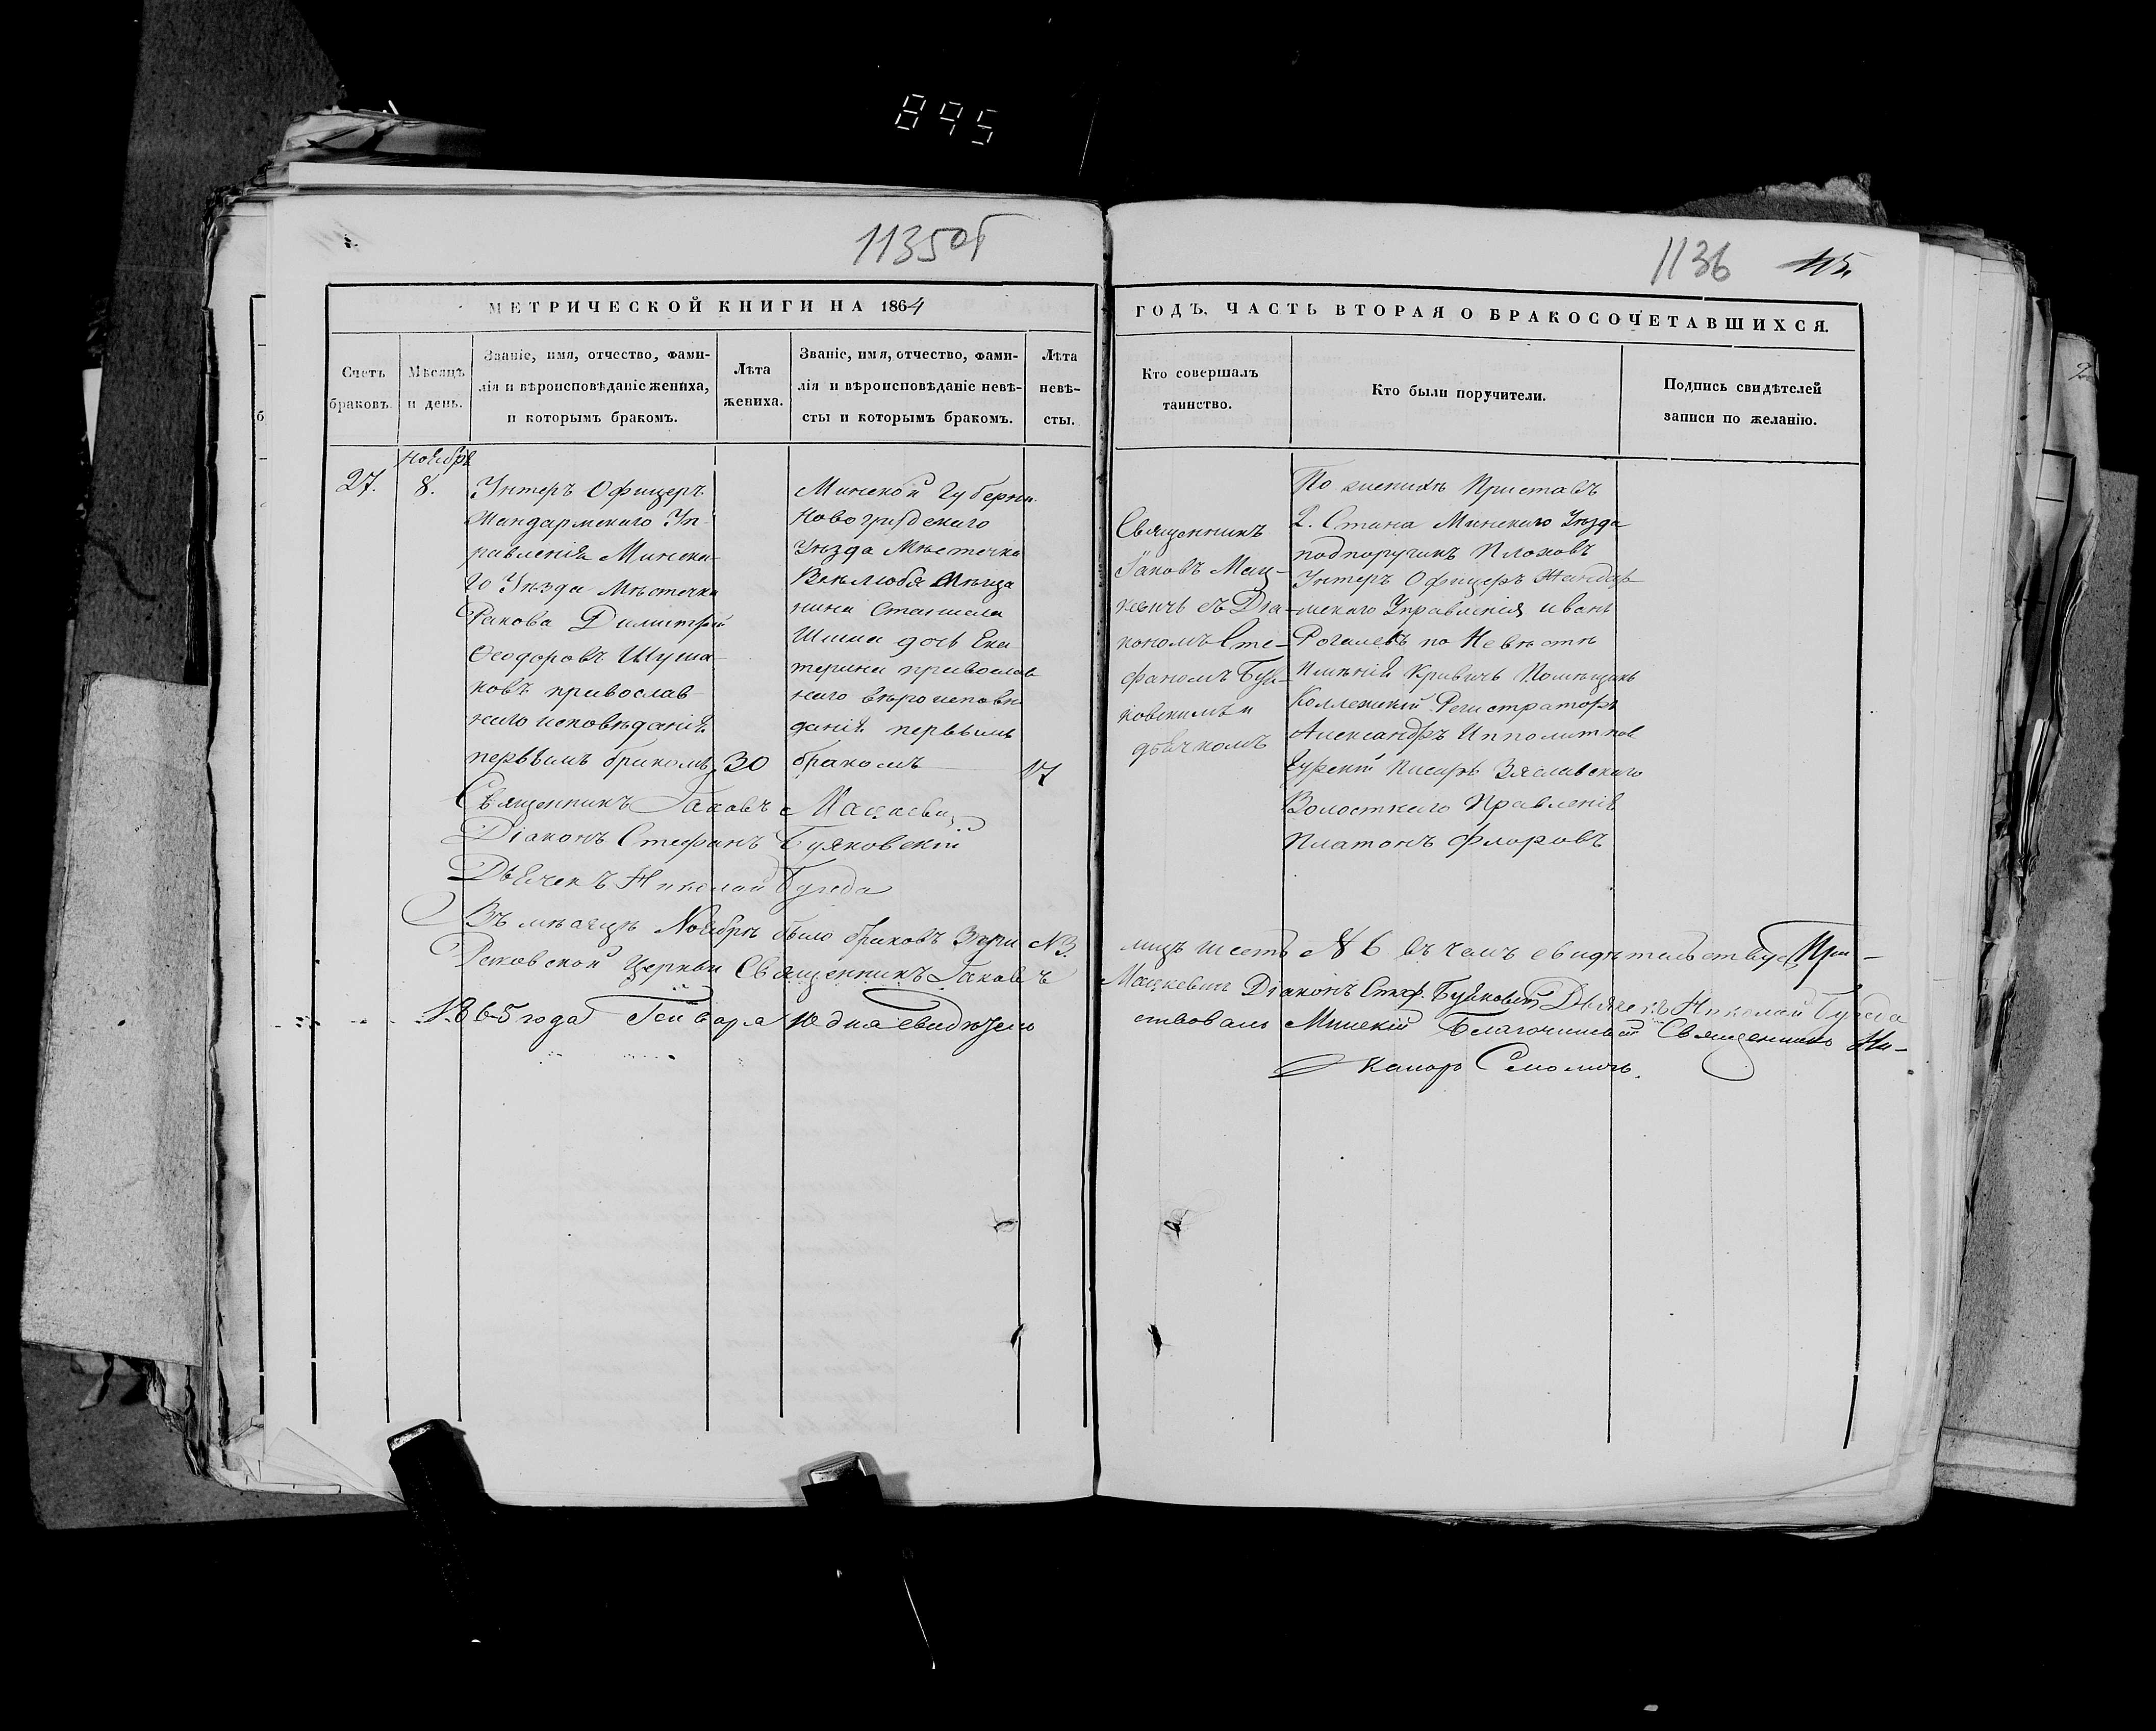 895
1135об
1136 115.
МЕТРИЧЕСКОЙ КНИГИ НА 1864
ГОДЪ, ЧАСТЬ ВТОРАЯ О БРАКОСОЧЕТАВШИХСЯ.
Счетъ
браковъ.
Мѣсяцъ
и день.
Званіе, имя, отчество, фами-
лія и вѣроисповѣданіе жениха,
и которымъ бракомъ.
Лѣта
жениха.
Званіе, имя, отчество, фами-
лія и вѣроисповѣданіе невѣ-
сты и которымъ бракомъ.
Лѣта
невѣ-
сты.
Кто совершалъ
таинство.
Кто были поручители.
Подпись свидѣтелей
записи по желанію.
27.
Ноябрь
8.
Унтеръ Офицеръ
Жандармскаго Уп-
равленія Минска-
го Уѣзда Мѣстечка
Ракова Димитрій
Ѳеодоровъ Шуша-
ковъ православ-
наго исповѣданія
первымъ бракомъ
30
Минской Губерни
Новогрудскаго
Уѣзда Мѣстечка
мѣща
нина Станислава
дочь Ека
терина православ
наго вѣроисповѣ
данія первымъ
бракомъ
17
Священникъ
Іаковъ Мац-
кевичъ съ Діа-
кономъ Сте-
фаномъ Буя-
ковскимъ и
дьячкомъ
По женихѣ Приставъ
2. Стана Минскаго Уѣзда
подпоручикъ
Унтеръ Офицеръ Жандар
мскаго Управленія иванъ
Рогалевъ по Невѣстѣ
имѣній Кривичъ Помѣщикъ
Коллежскій Регистраторъ
Александръ Ипполитовъ
Писарь Заславскаго
Волосткаго Правленія
Платонъ Флоровъ
Священникъ Іаковъ Мацкевичъ
Діаконъ Стефанъ Буяковскій
Дьячекъ Николай
Въ мѣсяцѣ Ноябрѣ было браковъ три №3.
лицъ шесть №6 въ чемъ свидѣтельствуемъ
Раковской Церкви Священникъ Іаковъ
Мацкевичъ Діаконъ Стеф. Буяковскій Дьячекъ Николай
1865 года Генваря 10 дня свидѣтель
ствовалъ Минскій Благочинный Священникъ Ни-
каноръ Смоличъ.